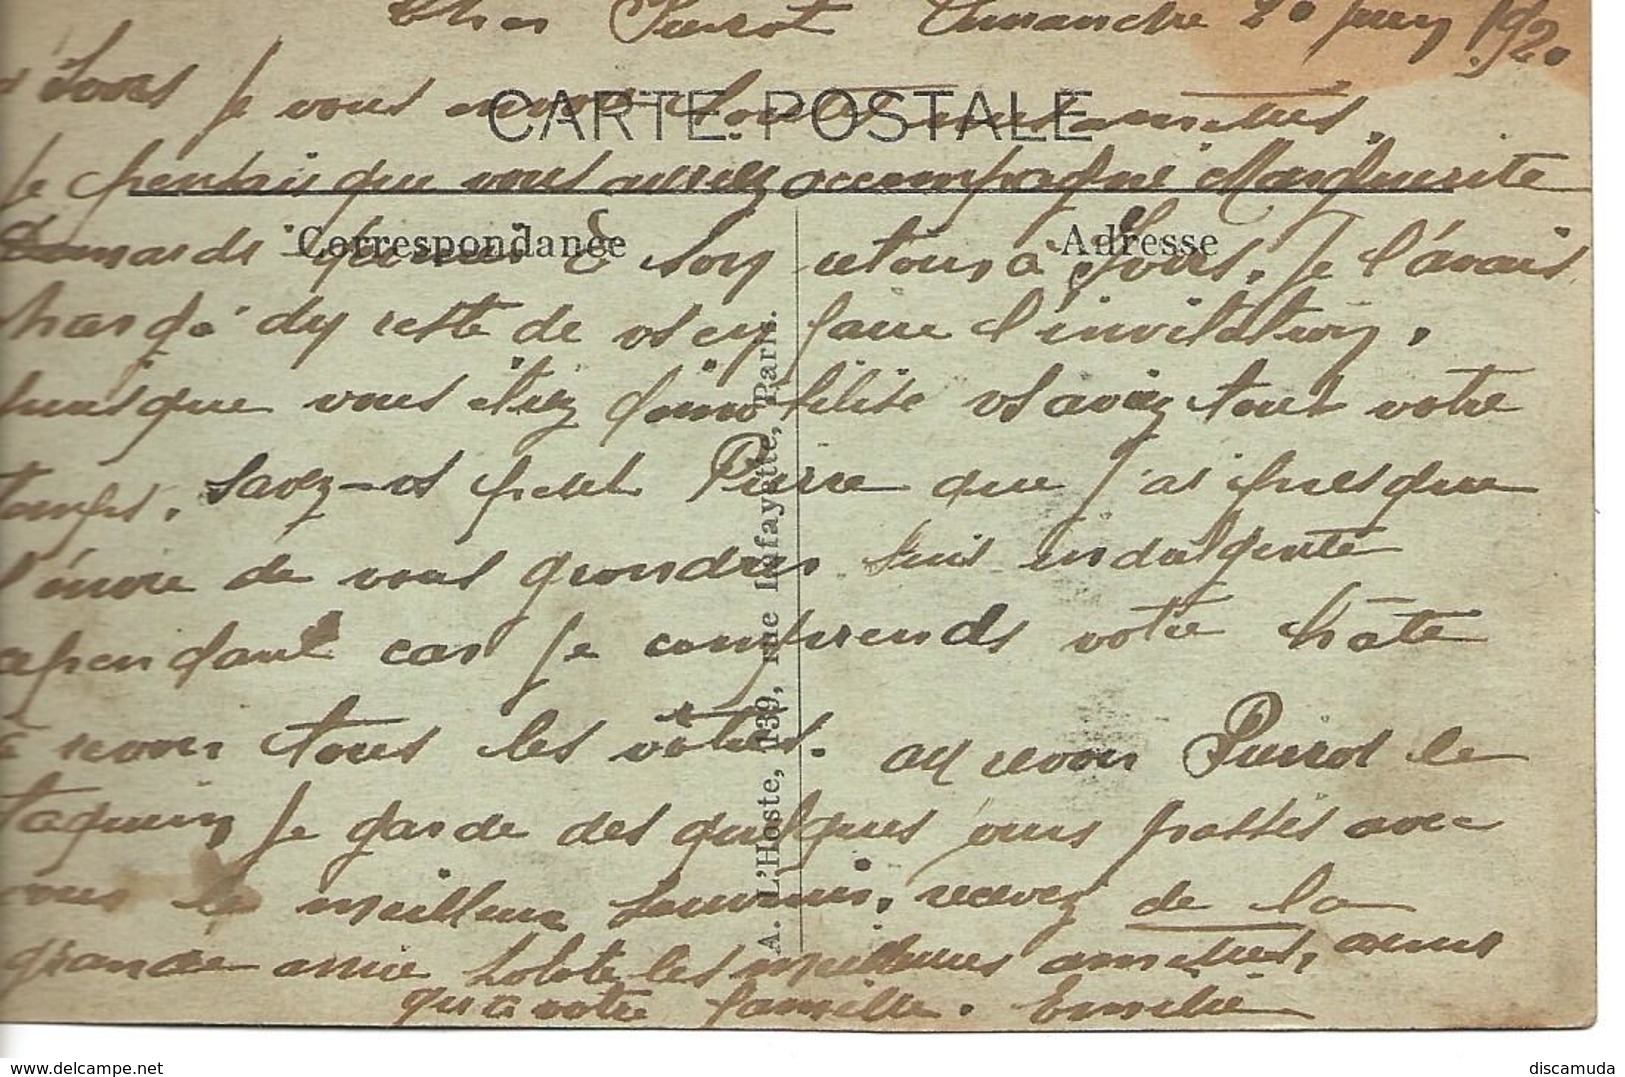 Cher Pierrot Dimanche 20 juin 1920
CARTE POSTALE
je vous envoie toutes mes amitiés.
Je pensais que vous auriez accompagné Marguerite
mardi à son retour à Je l'avais
chargé du reste de vs en faire l'invitation.
Puisque vous étiez démobilisé vs aviez tout votre
temps. Savez-vs petit Pierre que j'ai presque
l'envie de vous gronder suis indulgente
cependant car je comprends votre hâte
à revoir tous les vôtres. au revoir Pierrot le
taquin, Je garde des quelques jours passés avec
vous le meilleur souvenir, recevez de la
grande amie Lolote les meilleures amitiés, ainsi
qu'à votre famille. Emélie
Correspondance
Adresse
A. L'Hoste, 139, rue Lafayette, Paris.
www.delcampe.net
discamuda